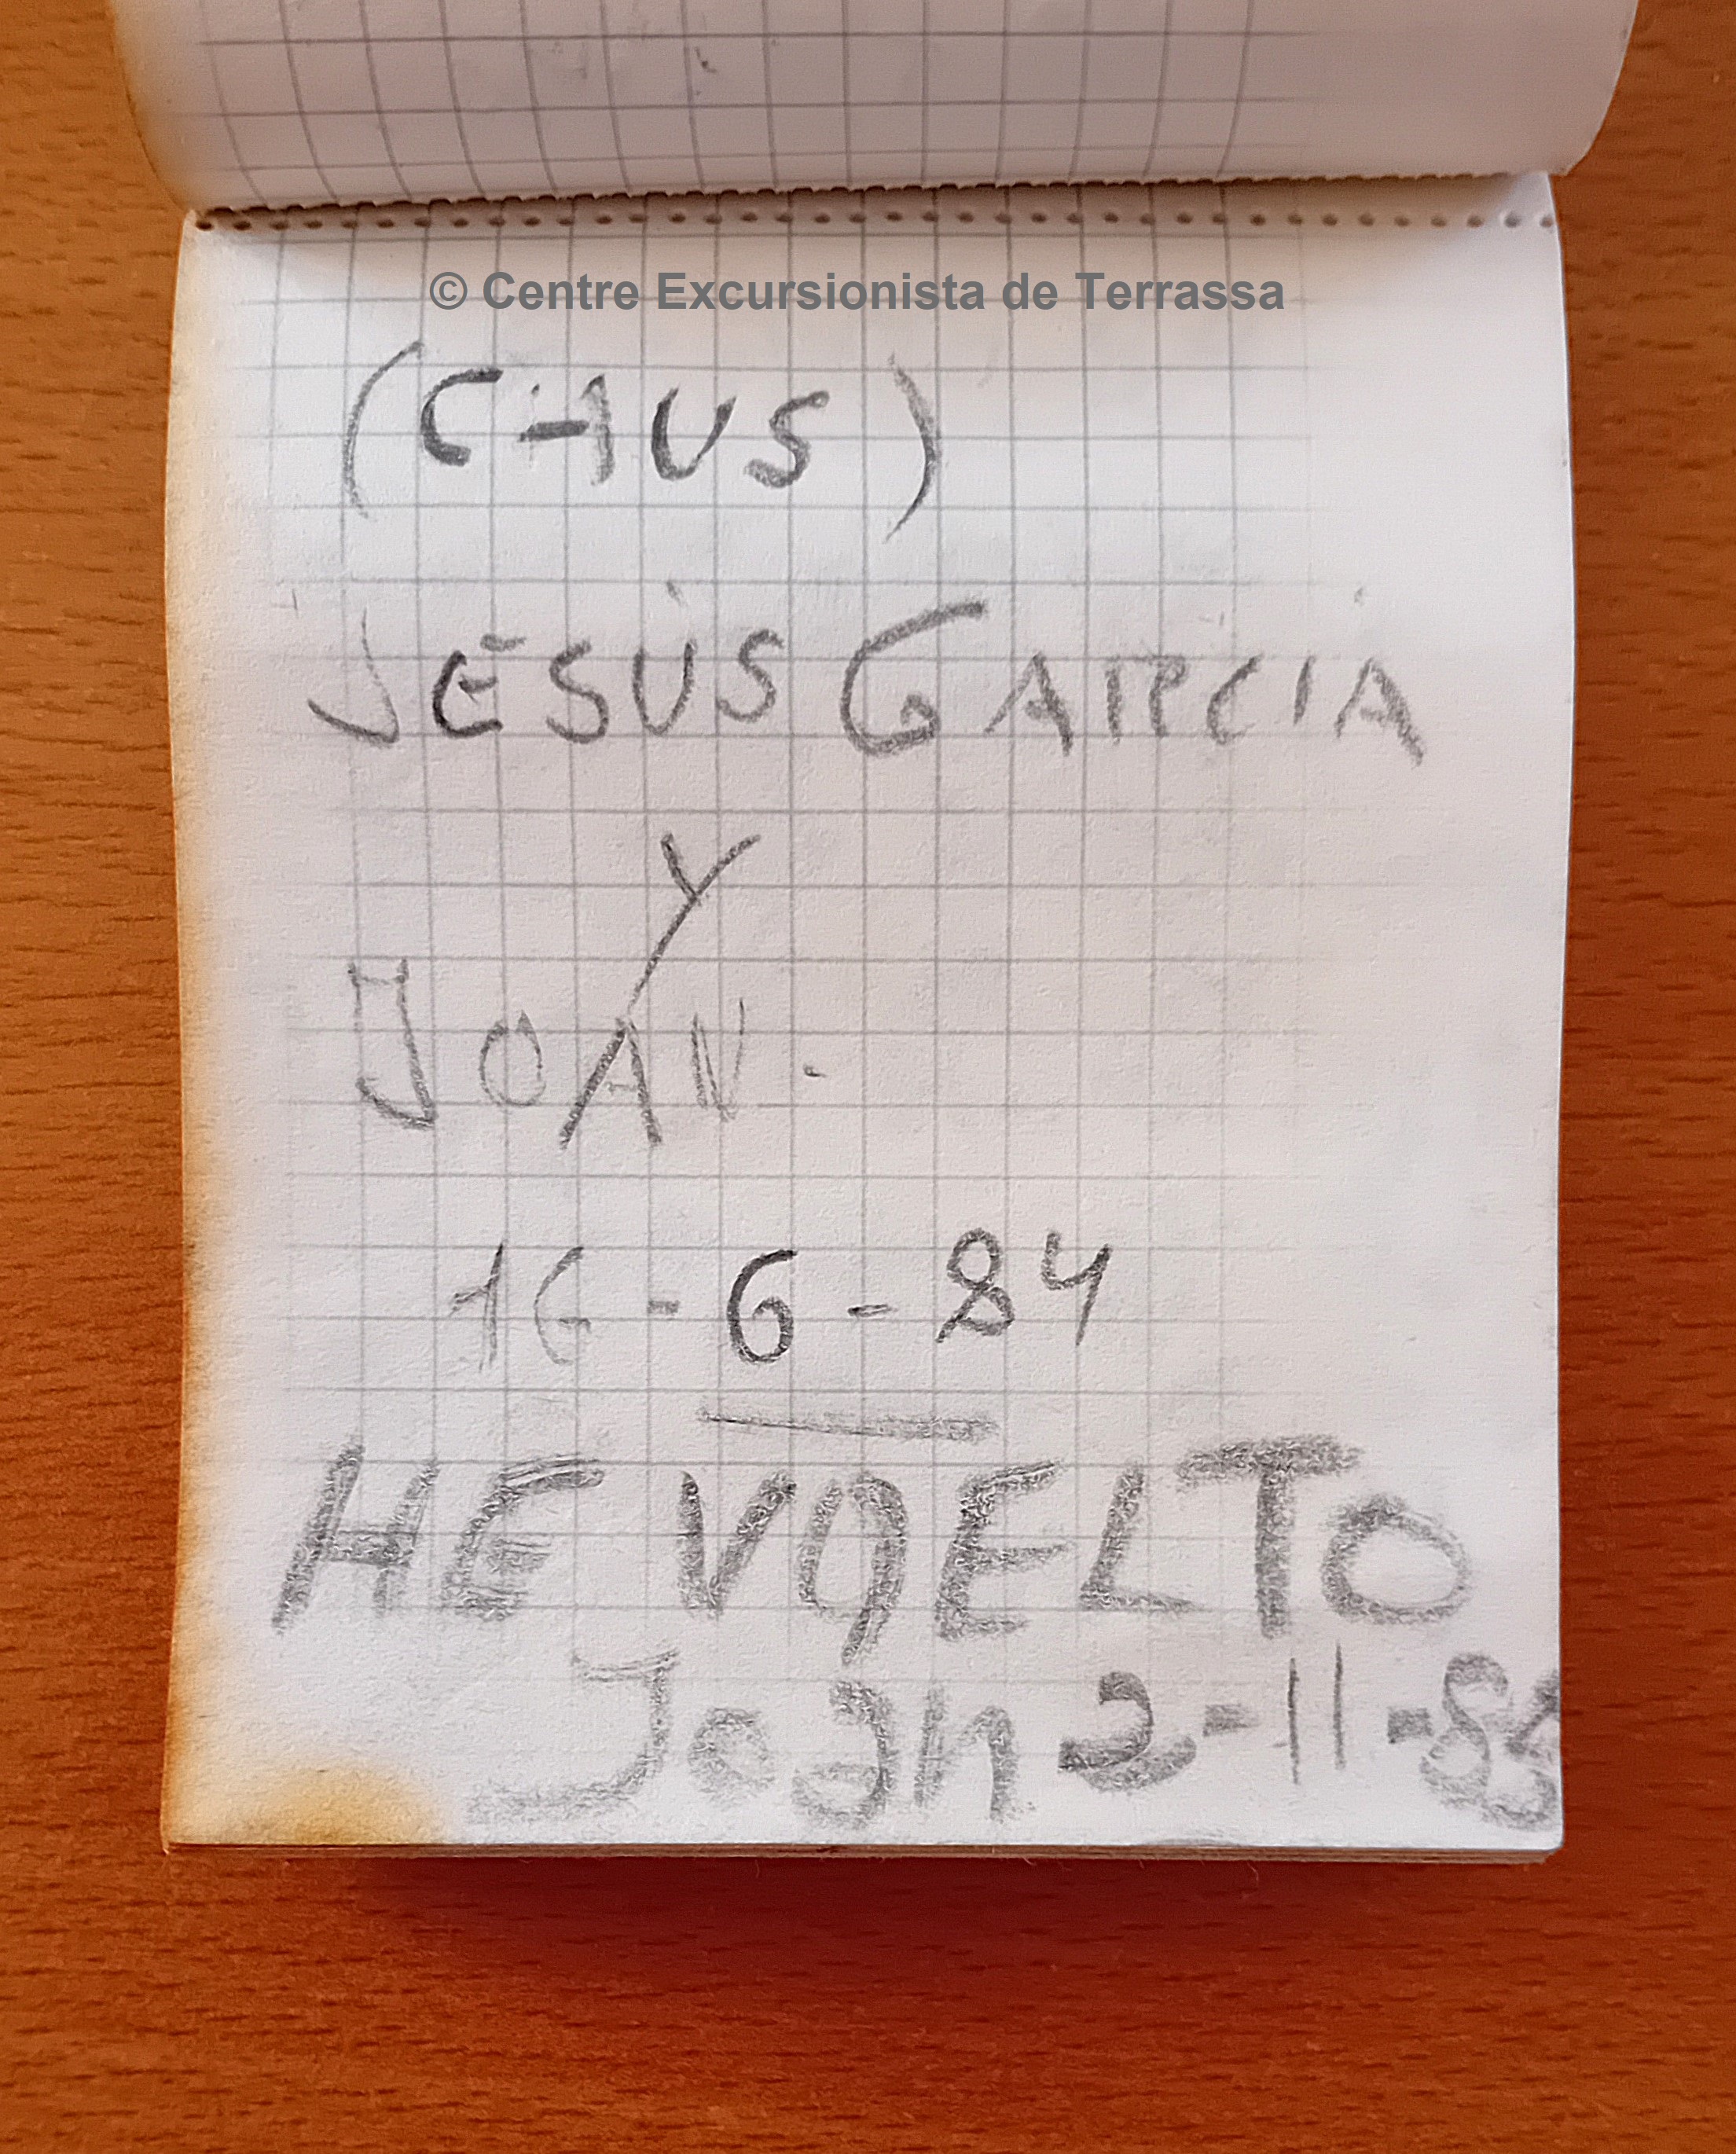 © Centre Excursionista de Terrassa
(CHUS)
JESÚS GARCIA
Y
JOAN.
16-6-84
HE VUELTO
Joan 2-11-85